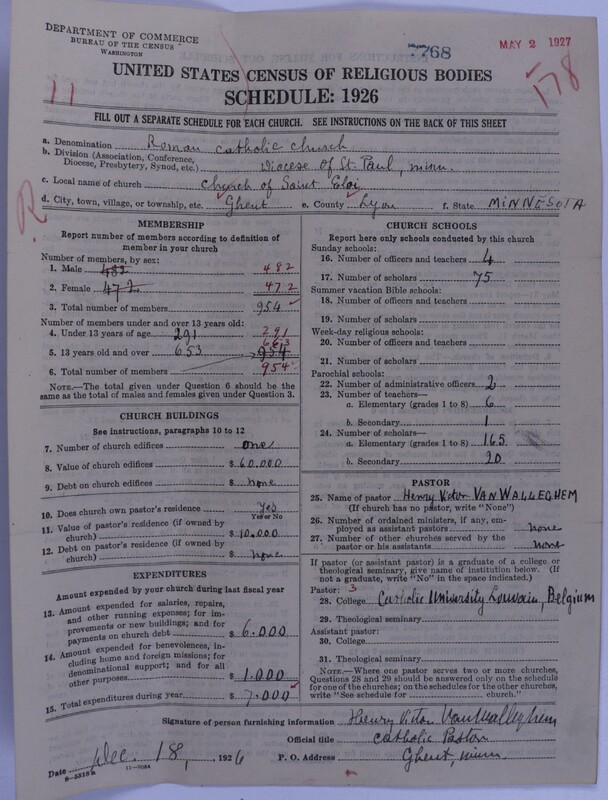 DEPARTMENT OF COMMERCE
BUREAU OF THE CENSUS
WASHINGTON
7768
MAY 2 1927
178
11
UNITED STATES CENSUS OF RELIGIOUS BODIES
SCHEDULE: 1926
FILL OUT A SEPARATE SCHEDULE FOR EACH CHURCH. SEE INSTRUCTIONS ON THE BACK OF THIS SHEET
a. Denomination Roman Catholic Church
b. Division (Association, Conference, Diocese, Presbytery, Synod, etc.) Diocese of St. Paul, Minn.
c. Local name of church Church of Saint Eloi
d. City, town, village, or township, etc. Ghent e. County Lyon f. State MINNESOTA
R
MEMBERSHIP
Report number of members according to definition of
member in your church
Number of members, by sex:
1. Male 482 482
2. Female 472 472
3. Total number of members 954
Number of members under and over 13 years old:
4. Under 13 years of age 291 291
5. 13 years old and over 653 663 954
6. Total number of members 954
NOTE.—The total given under Question 6 should be
the same as the total of males and females given under Question 3.
CHURCH BUILDINGS
See instructions, paragraphs 10 to 12
7. Number of church edifices one
8. Value of church edifices $ 60,000
9. Debt on church edifices $ None
10. Does church own pastor's residence? Yes
Yes or No
11. Value of pastor's residence (if owned by
church) $ 10,000
12. Debt on pastor's residence (if owned by
church) $ None
EXPENDITURES
Amount expended by your church during last fiscal year
13. Amount expended for salaries, repairs,
and other running expenses; for im-
provements or new buildings; and for
payments on church debt $ 6,000
14. Amount expended for benevolences, in-
cluding home and foreign missions; for
denominational support; and for all
other purposes $ 1,000
15. Total expenditures during year $ 7,000
CHURCH SCHOOLS
Report here only schools conducted by this church
Sunday schools:
16. Number of officers and teachers 4
17. Number of scholars 75
Summer vacation Bible schools:
18. Number of officers and teachers
19. Number of scholars
Week-day religious schools:
20. Number of officers and teachers
21. Number of scholars
Parochial schools:
22. Number of administrative officers 2
23. Number of teachers—
a. Elementary (grades 1 to 8) 6
b. Secondary 1
24. Number of scholars—
a. Elementary (grades 1 to 8) 165
b. Secondary 20
PASTOR
25. Name of pastor Henry Victor VAN WALLEGHEM
(If church has no pastor, write "None")
26. Number of ordained ministers, if any, em-
ployed as assistant pastors none
27. Number of other churches served by the
pastor or his assistants none
If pastor (or assistant pastor) is a graduate of a college or
theological seminary, give name of institution below. (If
not a graduate, write "No" in the space indicated.)
Pastor: 3
28. College Catholic University Louvain, Belgium
29. Theological seminary
Assistant pastor:
30. College
31. Theological seminary
NOTE.—Where one pastor serves two or more churches,
Questions 28 and 29 should be answered only on the schedule
for one of the churches; on the schedules for the other churches,
write "See schedule for church."
Signature of person furnishing information Henry Victor Van Walleghem
Official title Catholic Pastor
Date Dec. 18, 1926 P. O. Address Ghent, Minn.
8-5318a